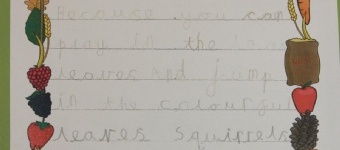 Because you can
play in the
leaves And jump
in the colourful
leaves squirrels